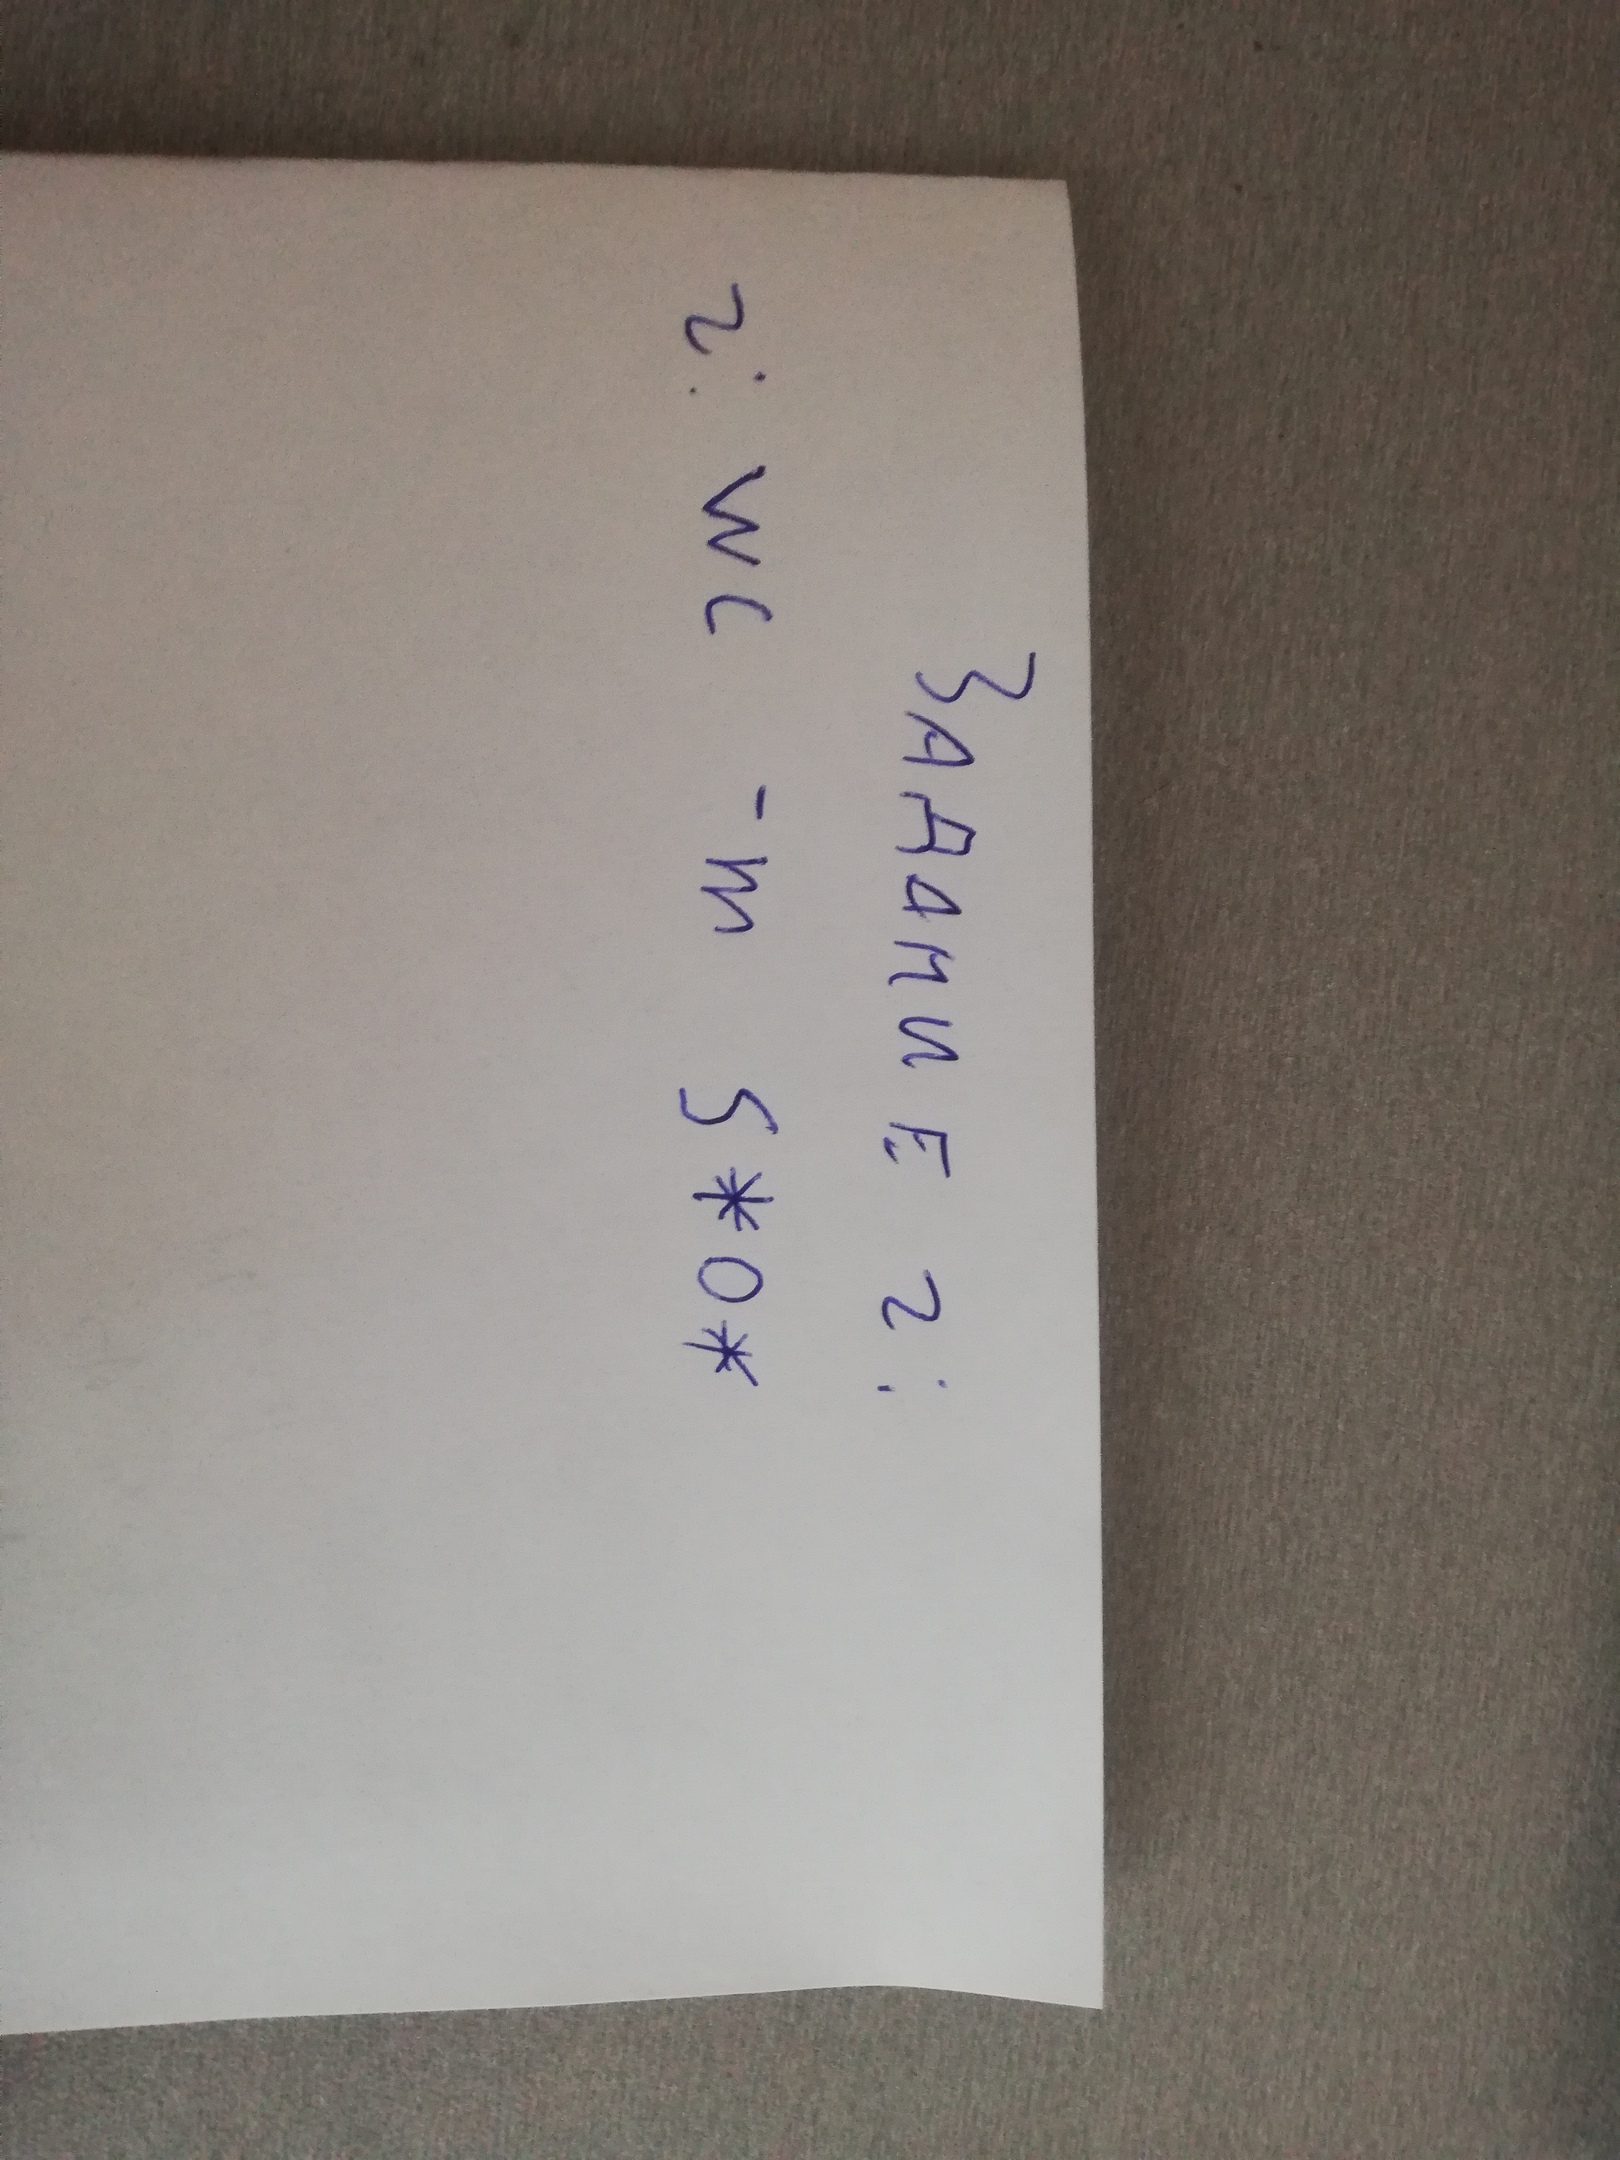 ЗАДАНИЕ 2:
2: wc -m S*O*